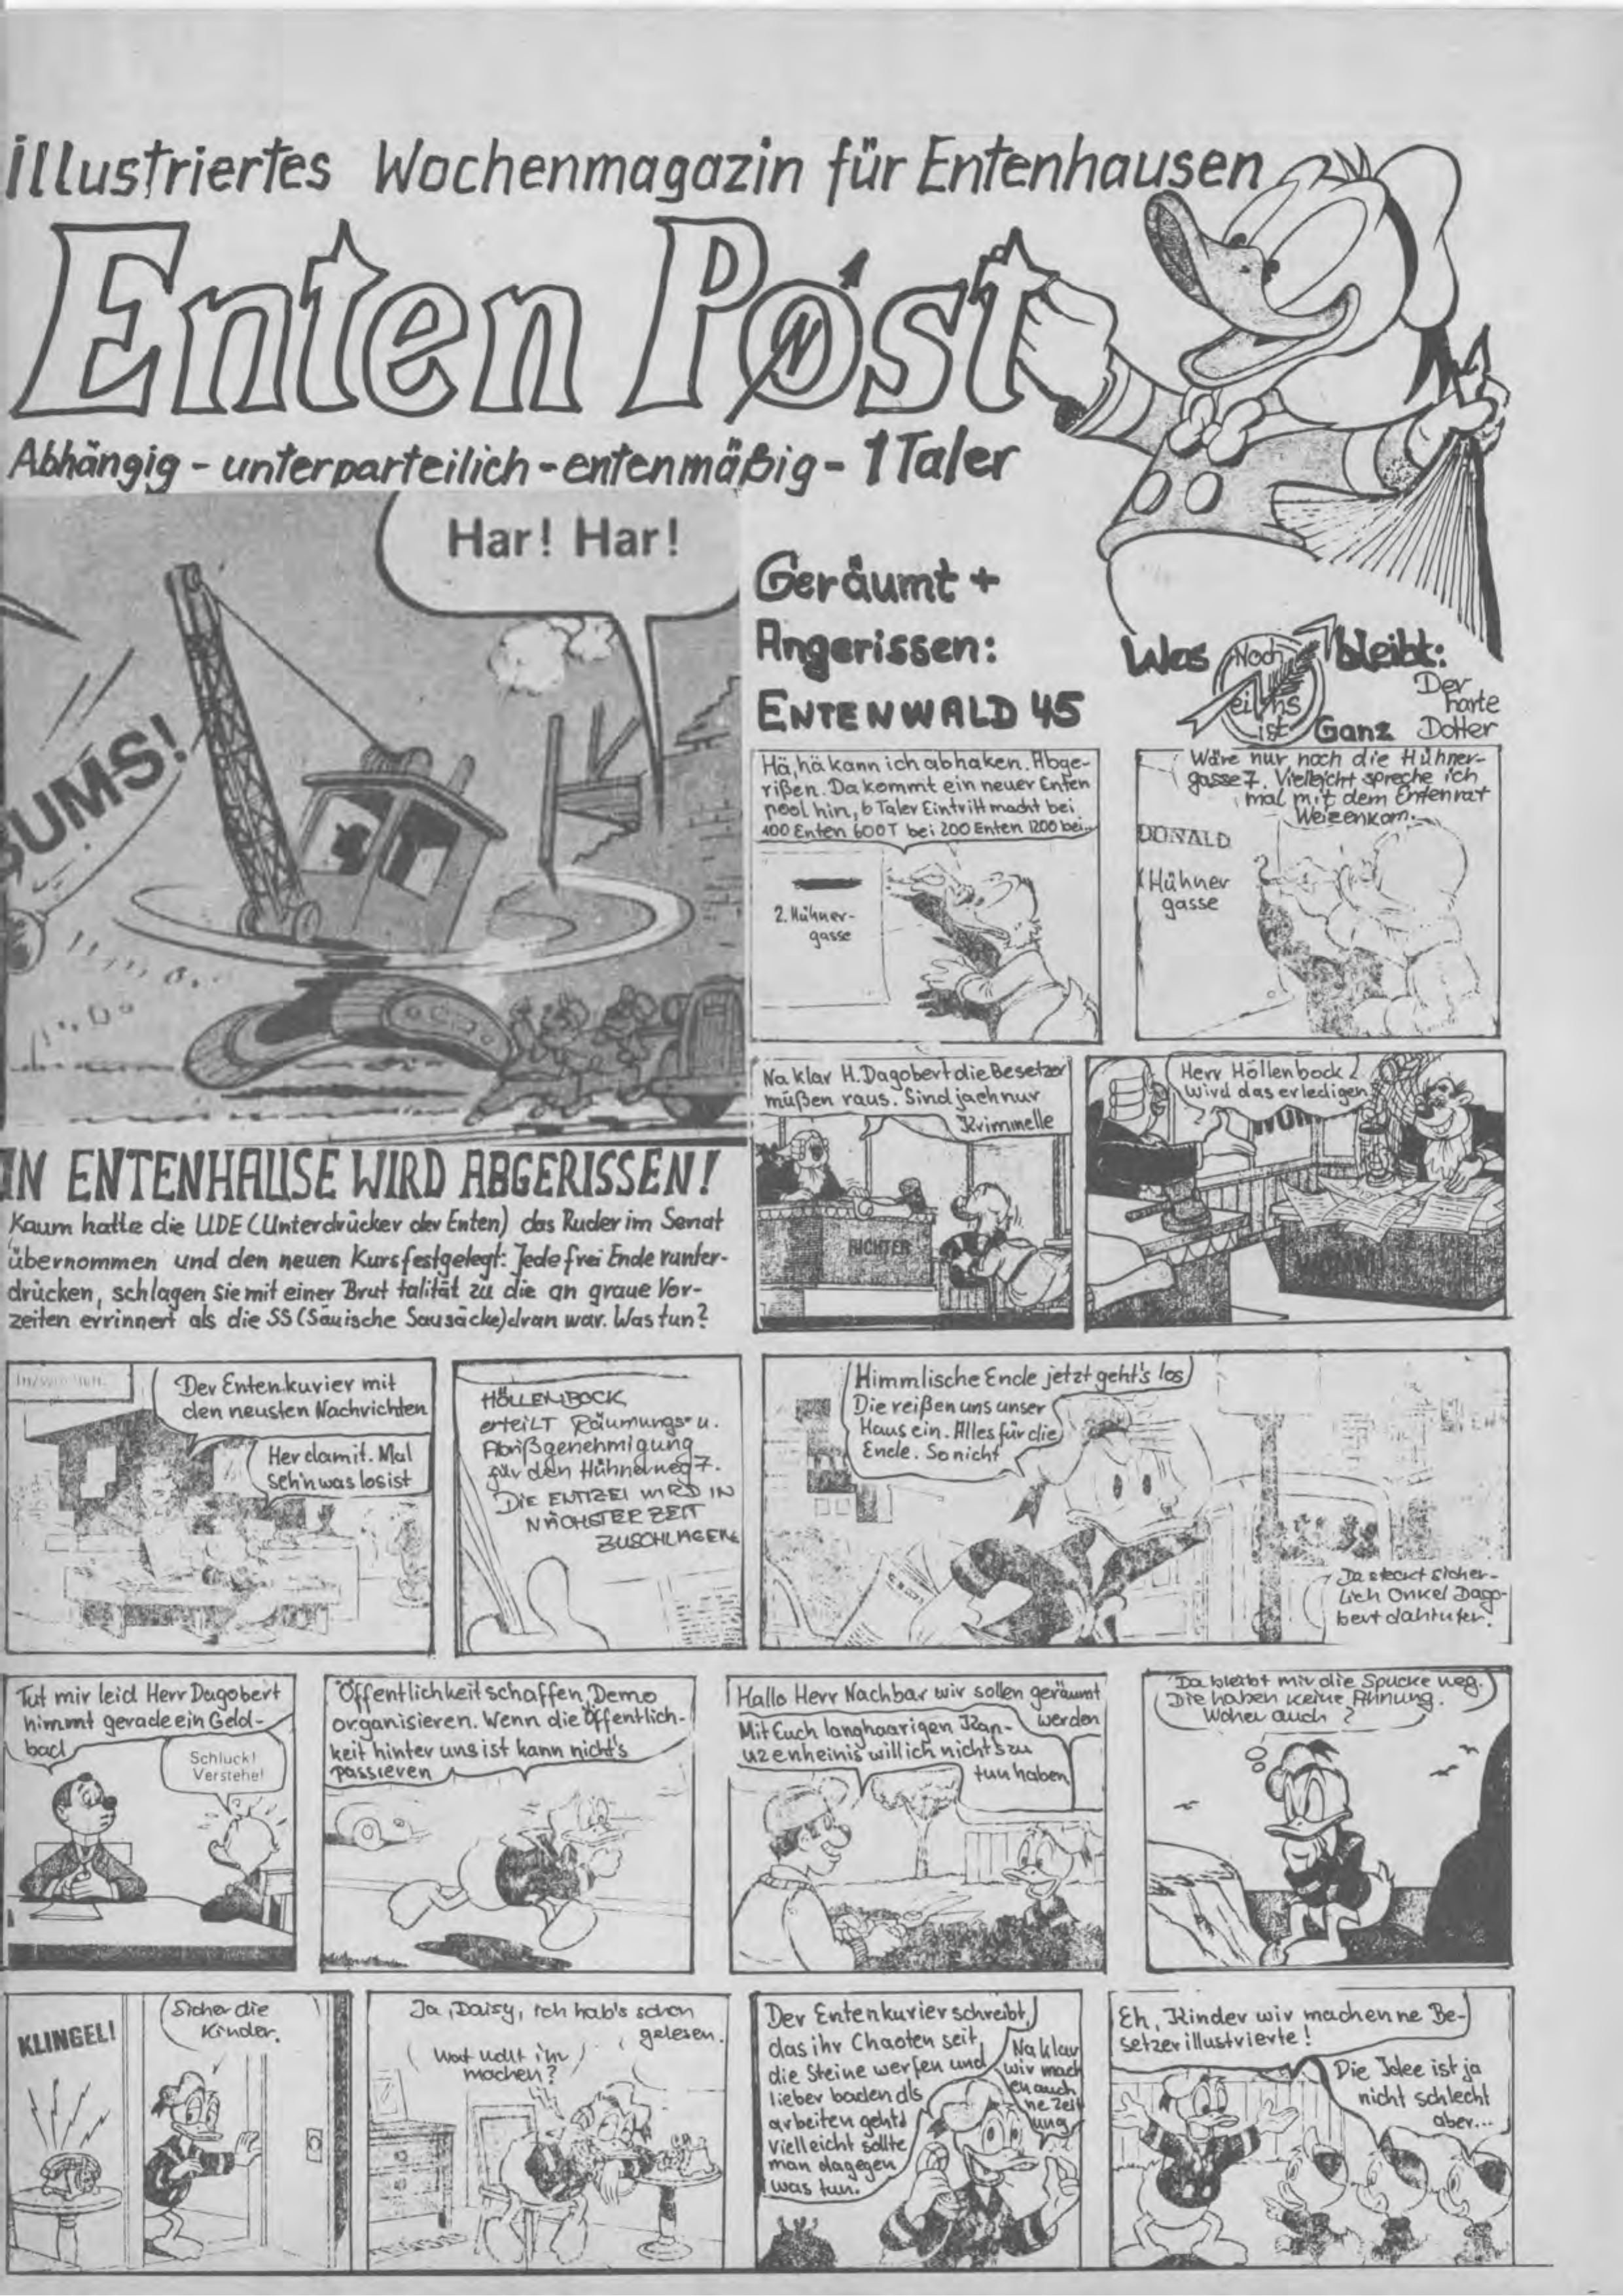 illustriertes Wochenmagazin für Entenhausen
Enten Post
N
Abhängig - unterparteilich - entenmäßig - 1 Taler
Har! Har!
BUMS!
Geräumt +
Angerissen:
ENTENWALD 45
Was Noch bleibt:
eins
ist Ganz
Der
harte
Dotter
Hä, hä kann ich abhaken. Abge-
rißen. Da kommt ein neuer Enten
pool hin, 6 Taler Eintritt macht bei
100 Enten 600T bei 200 Enten 1200 bei..
2. Hühner-
gasse
Wäre nur noch die Hühner-
gasse 7. Vielleicht spreche ich
mal mit dem Entenrat
Weizenkorn.
DONALD
Hühner
gasse
Na klar H. Dagobert die Besetzer
müßen raus. Sind ja eh nur
Krimmelle
RICHTER
Herr Höllenbock
wird das erledigen
IN ENTENHAUSE WIRD ABGERISSEN!
Kaum hatte die UDE (Unterdrücker der Enten) das Ruder im Senat
übernommen und den neuen Kurs festgelegt: Jede frei Ende runter-
drücken, schlagen sie mit einer Brut talität zu die an graue Vor-
zeiten errinnert als die SS (Säuische Sausäcke) dran war. Was tun?
Inzwischen
Der Entenkurier mit
den neusten Nachrichten
Her damit. Mal
seh'n was los ist
HÖLLENBOCK
erteilt Räumungs- u.
Abrißgenehmigung
für den Hühnerweg 7.
DIE ENTIZEI WIRD IN
NÄCHSTER ZEIT
ZUSCHLAGEN
Himmlische Ende jetzt geht's los
Die reißen uns unser
Haus ein. Alles für die
Ende. So nicht
Da steckt sicher-
lich Onkel Dago-
bert dahinter.
Tut mir leid Herr Dagobert
nimmt gerade ein Geld-
bad
Schluck!
Verstehe!
Öffentlichkeit schaffen, Demo
organisieren. Wenn die Öffentlich-
keit hinter uns ist kann nicht's
passieren
Hallo Herr Nachbar wir sollen geräumt
werden
Mit Euch langhaarigen Kan-
uzenheinis will ich nichts zu
tun haben
Da bleibt mir die Spucke weg.
Die haben keine Ahnung.
Woher auch?
KLINGEL!
Sicher die
Kinder.
Ja, Daisy, ich hab's schon
gelesen.
Wat wollt ihr
machen?
Der Entenkurier schreibt,
das ihr Chaoten seit,
die Steine werfen und
lieber baden als
arbeiten geht
Vielleicht sollte
man dagegen
was tun.
Na klar
wir mach
en auch
ne Zeit
ung
Eh, Kinder wir machen ne Be-
setzerillustrierte!
Die Idee ist ja
nicht schlecht
aber...